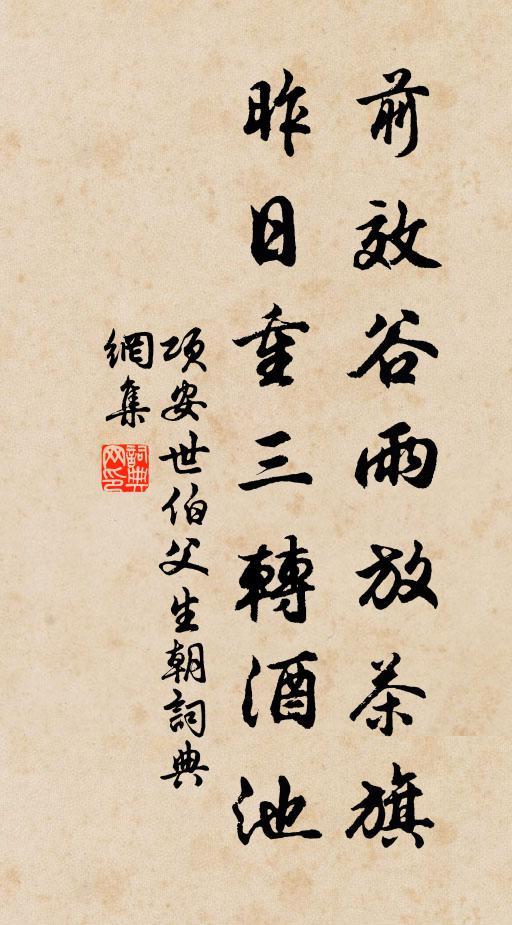 前效谷雨放茶旗
昨日重三轉酒池
項安世伯父生朝詞典
網集
詞典网印